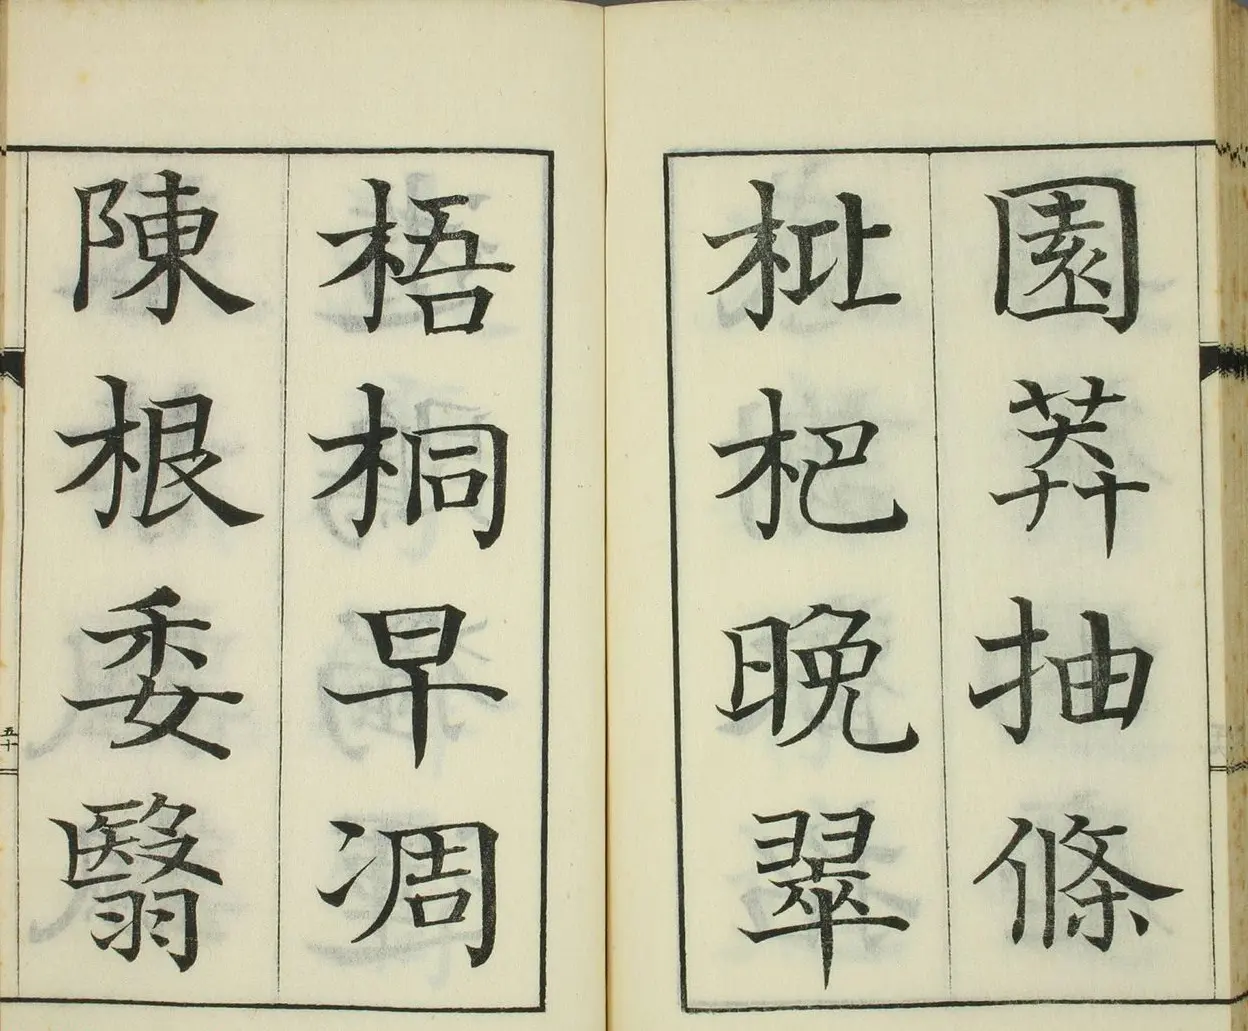 園莽抽條
枇杷晚翠
梧桐早凋
陳根委翳
五十